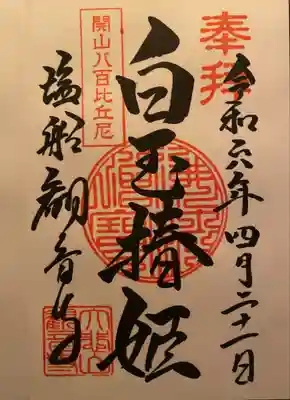 奉拝
令和六年四月二十一日
白玉椿姫
開山八百比丘尼
塩船観音寺